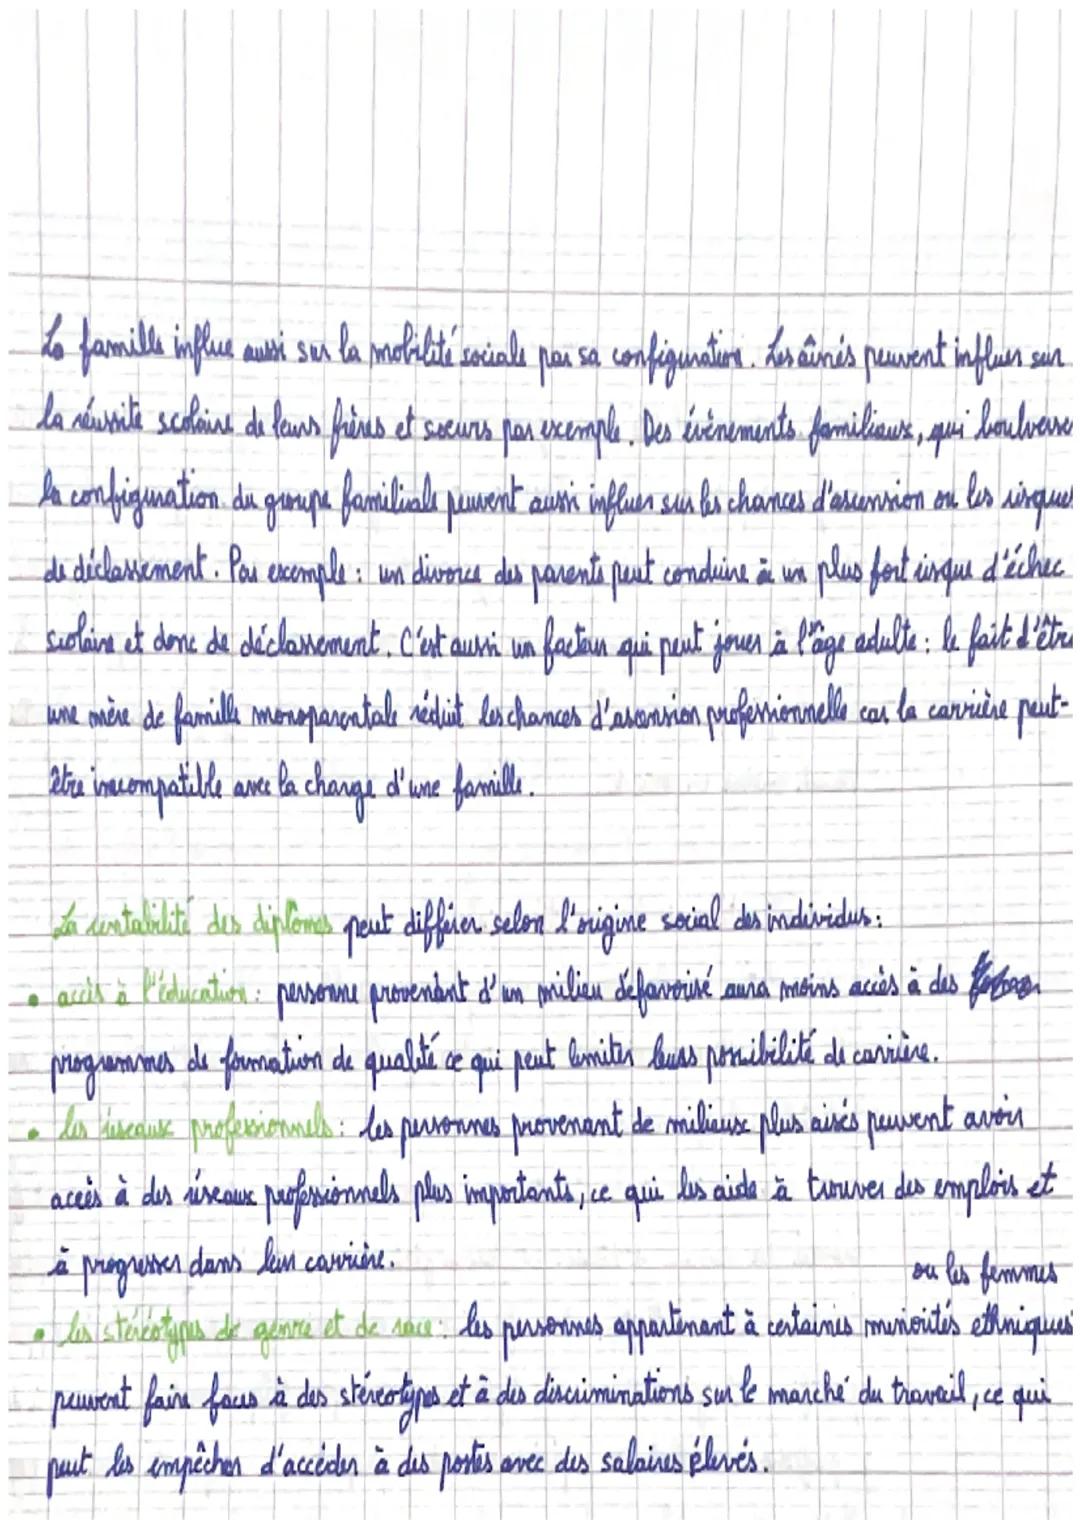 La famille influe aussi sur la mobilité sociale par sa configuration. Les aînés peuvent influer sur
la réussite scolaire de leurs frères et soeurs par exemple. Des évènements familiaux, qui boulverse
la configuration du groupe familiale peuvent aussi influer sur les chances d'ascension ou les risques
de déclassement. Par exemple : un divorce des parents peut conduire à un plus fort risque d'échec
scolaire et donc de déclassement. C'est aussi un facteur qui peut jouer à l'âge adulte : le fait d'être
une mère de famille monoparentale réduit les chances d'ascension professionnelle car la carrière peut-
être incompatible avec la charge d'une famille.
La rentabilité des diplômes peut différer selon l'origine social des individus :
• accès à l'éducation : personne provenant d'un milieu défavorisé aura moins accès à des
programmes de formation de qualité ce qui peut limiter leurs possibilité de carrière.
• les réseaux professionnels : les personnes provenant de milieux plus aisés peuvent avoir
accès à des réseaux professionnels plus importants, ce qui les aide à trouver des emplois et
à progresser dans leur carrière.
ou les femmes
• les stéréotypes de genre et de race : les personnes appartenant à certaines minorités ethniques
peuvent faire face à des stéréotypes et à des discriminations sur le marché du travail, ce qui
peut les empêcher d'accéder à des postes avec des salaires élevés.